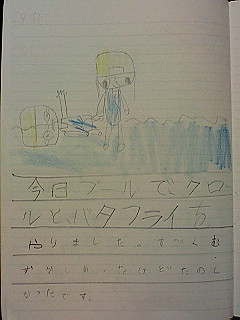 今日プールで、クロー
ルと、バタフライを
やりました。すごくむ
ずかしかったけどたのし
かったです。